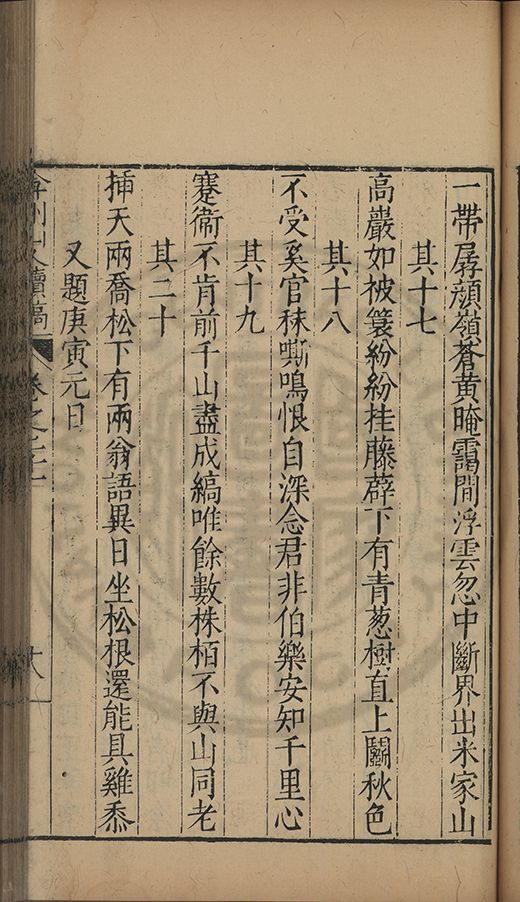 一帶孱顏嶺蒼黃晻靄間浮雲忽中斷界出米家山
其十七
高巖如被簑紛紛挂藤薜下有青葱樹直上鬭秋色
其十八
不受奚官秣嘶鳴恨自深念君非伯樂安知千里心
其十九
蹇衞不肯前千山盡成縞唯餘數株栢不與山同老
其二十
揷天兩喬松下有兩翁語異日坐松根還能具雞黍
又題庚寅元日
續稿 卷之二 十八